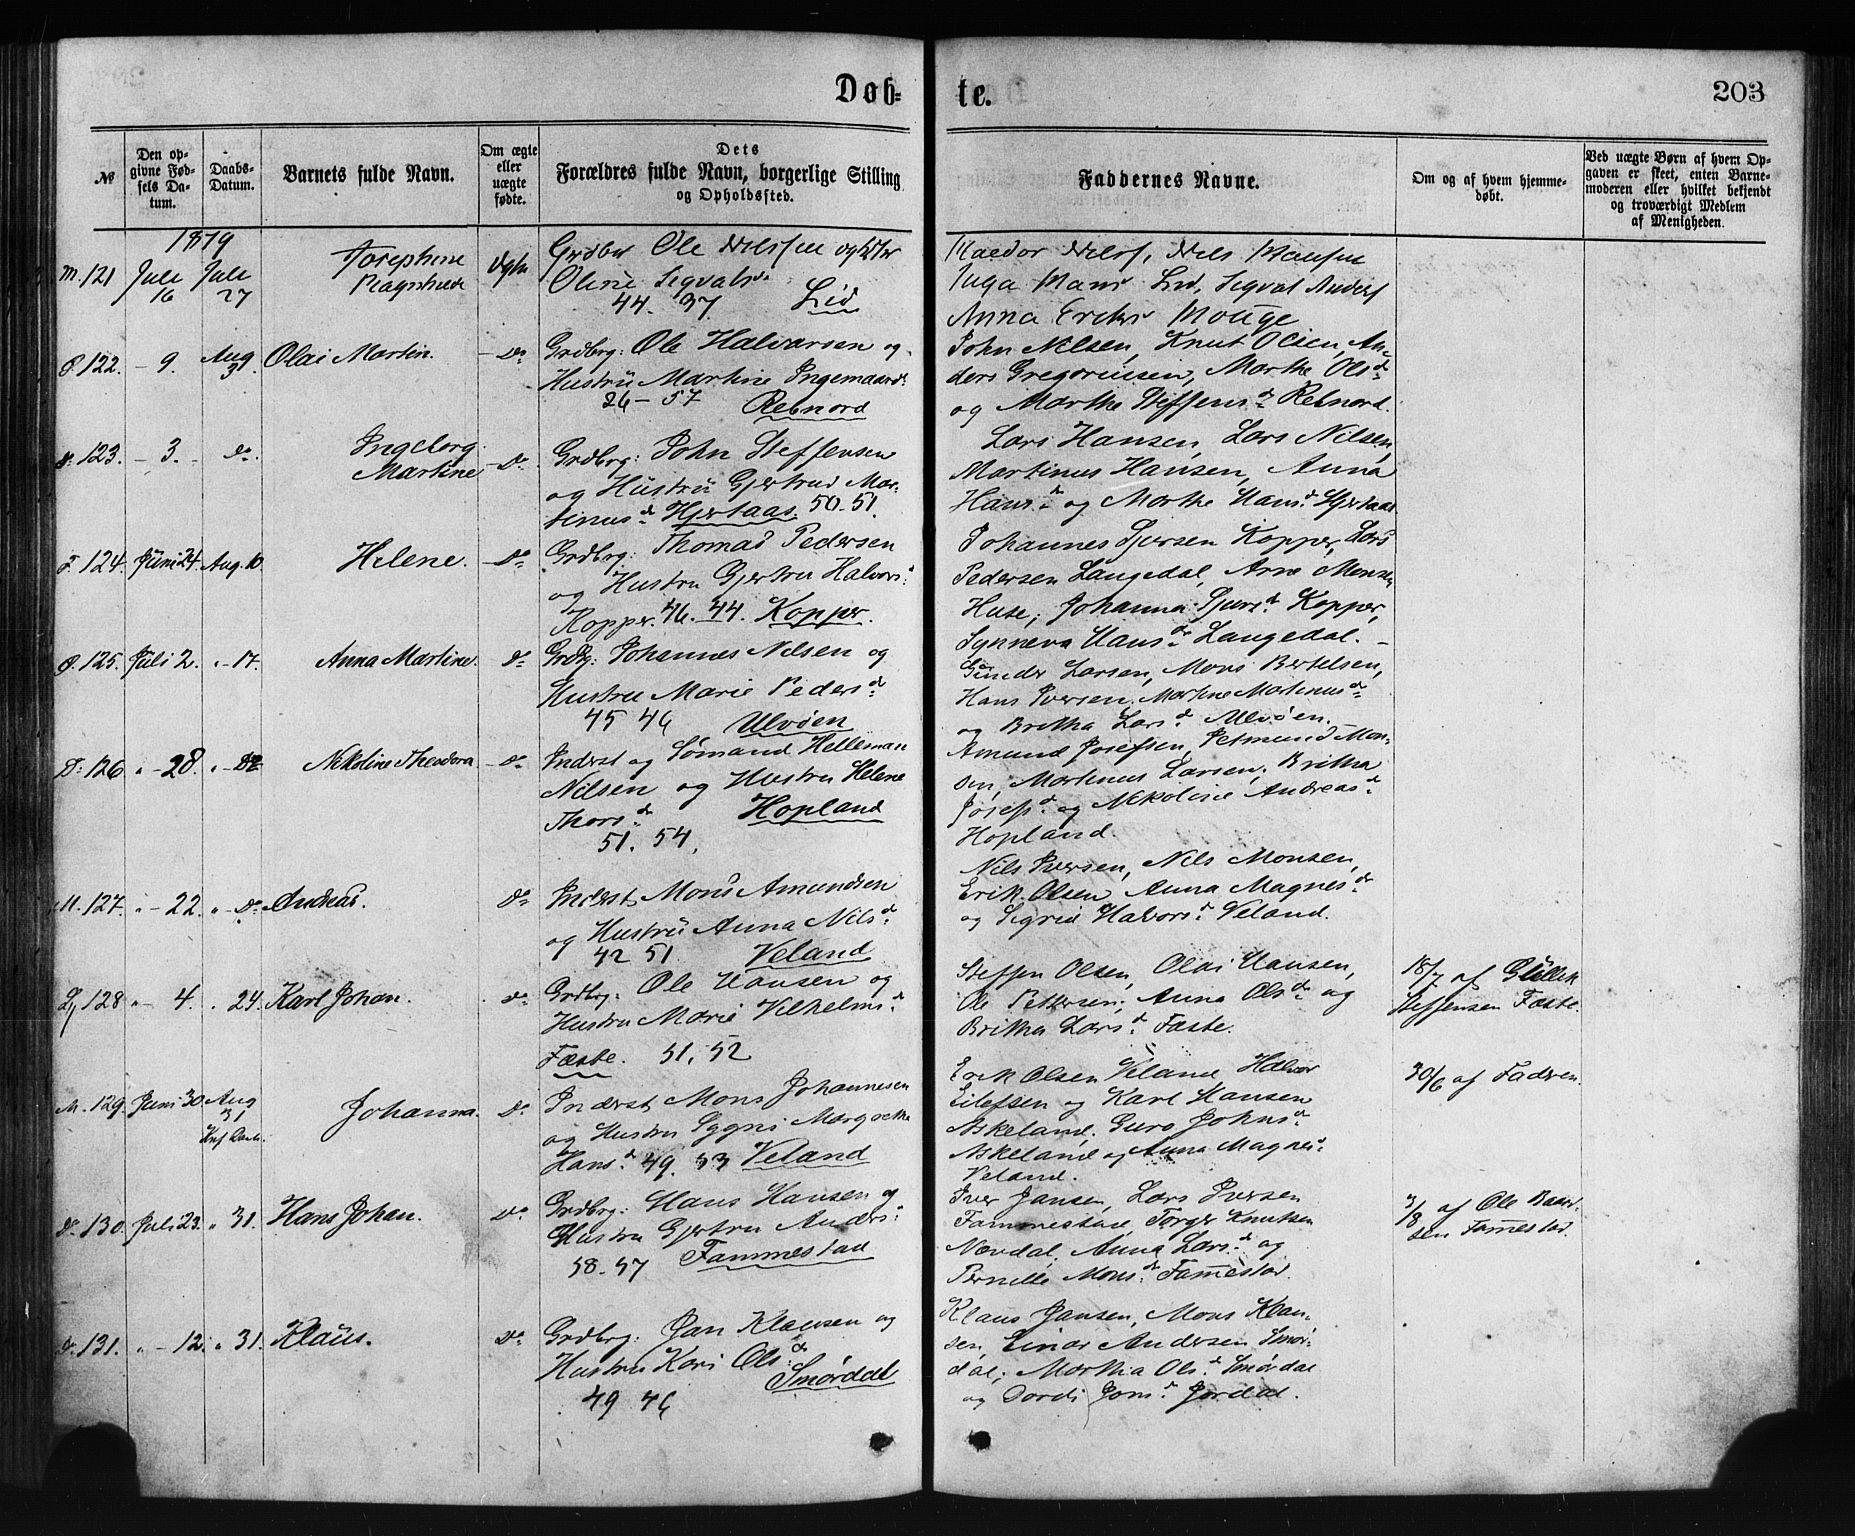 Døb-
te.
203
№
Den op-
givne Fød-
sels Da-
tum.
Daabs-
Datum.
Barnets fulde Navn.
Om ægte
eller
uægte
fødte.
Dets
Forældres fulde Navn, borgerlige Stilling
og Opholdssted.
Faddernes Navne.
Om og af hvem hjemme-
døbt.
Ved uægte Børn af hvem Op-
gaven er skeet, enten Barne-
moderen eller hvilket bekjendt
og troværdigt Medlem
af Menigheden.
1879
M. 121 Juli 16 Juli 27
Josephine
Ragnhilde
Ægte
Grdbr Ole Nielsen og Hstr
Oline Sigvalds
44. 37 Lid
Nils Hansen
Inga Mans Lid, Sigvat Anders
Anna Eriks Mouge
122. - 9. Aug 31 Olai Martin. Do
Grdbrg: Ole Halvarsen og
Hustru Martine Ingemaards d
26 - 57 Rebnord
John Nilsen, Knut Olsen, An-
ders Gregoriussen, Marthe Ols d
og Marthe Steffens d Rebnord.
123. - 3. Do.
Ingeborg
Martine
Do.
Grdbrg: John Steffensen
og Hustru Gjertrud Mar-
tinus d Hjertaas. 50. 51.
Lars Hansen, Lars Nilsen,
Martinus Hansen, Anna
Hans d og Marthe Hans d Hjertaas
124. Juni 24. Aug. 10. Helene. Do
Grdbrg: Thomas Pedersen
og Hustru Gjertru Halvors d
Kopper. 46. 44. Kopper.
Johannes Sjursen Kopper, Lars
Pedersen Langedal, Arne Monsen
Huse, Johanna Sjurs d Kopper,
Synneva Hans d Langedal.
125. Juli 2. " - 17. Anna Martine. Do
Grdbrg: Johannes Nilsen og
Hustru Marie Peders d
45 46 Ulvøen
Gunder Larsen, Mons Bertelsen,
Hans Iversen, Martine Martinus d
og Britha Lars d Ulvøen.
126 " - 28. " - Do Nikoline Theodora. Do
Inderst og Sømand Helleman
Nilsen og Hustru Helene
Thors d Hopland
51. 54.
Amund Josefsen, Mon-
sen, Martinus Larsen, Britha
Josefs d og Nikoline Andreas d
Hopland.
127. " - 22. " - Do Andreas. Do
Inderst Mons Amundsen
og Hustru Anna Nils d
42 51 Veland
Nils Iversen, Nils Monsen,
Erik Olsen, Anna Magnes d
og Sigrid Halvors d Veland.
128 " - 4. " 24. Karl Johan. Do
Grdbrg: Ole Hansen og
Hustru Marie Vilhelms d
Fæste. 51, 52
Steffen Olsen, Olai Hansen,
Ole Pettersen, Anna Ols d og
Britha Lars d Fæste.
18/7 af Gullek
Steffensen Fæste.
M. 129. Juni 30. Aug 31 Johanna. Do
Inderst Mons Johannesen
og Hustru Sygni Margrethe
Hans d 49. 53 Veland
Erik Olsen Veland Halvor
Eilefsen og Karl Hansen
Askeland, Guro Johns d
Askeland og Anna Magnes d
Veland.
30/6 af Fadren.
130. Juli 23. " 31. Hans Johan. Do
Grdbrg: Hans Hansen og
Hustru Gjertru Anders d
58. 57 Fammestad
Iver Jansen, Lars Iversen
Fammestad, Torger Knutsen
Nævdal, Anna Lars d og
Pernille Mons d Famestad.
3/8 af Ole Baar-
sen Famestad.
131. " - 12. " 31. Klaus. Do
Grdbrg: Jan Klausen og
Hustru Kari Ols d
Smørdal
49 46
Klaus Jansen, Mons Klau-
sen, Einar Andersen Smør-
dal, Martha Ols d Smørdal
og Dordi Jons d Jordal.